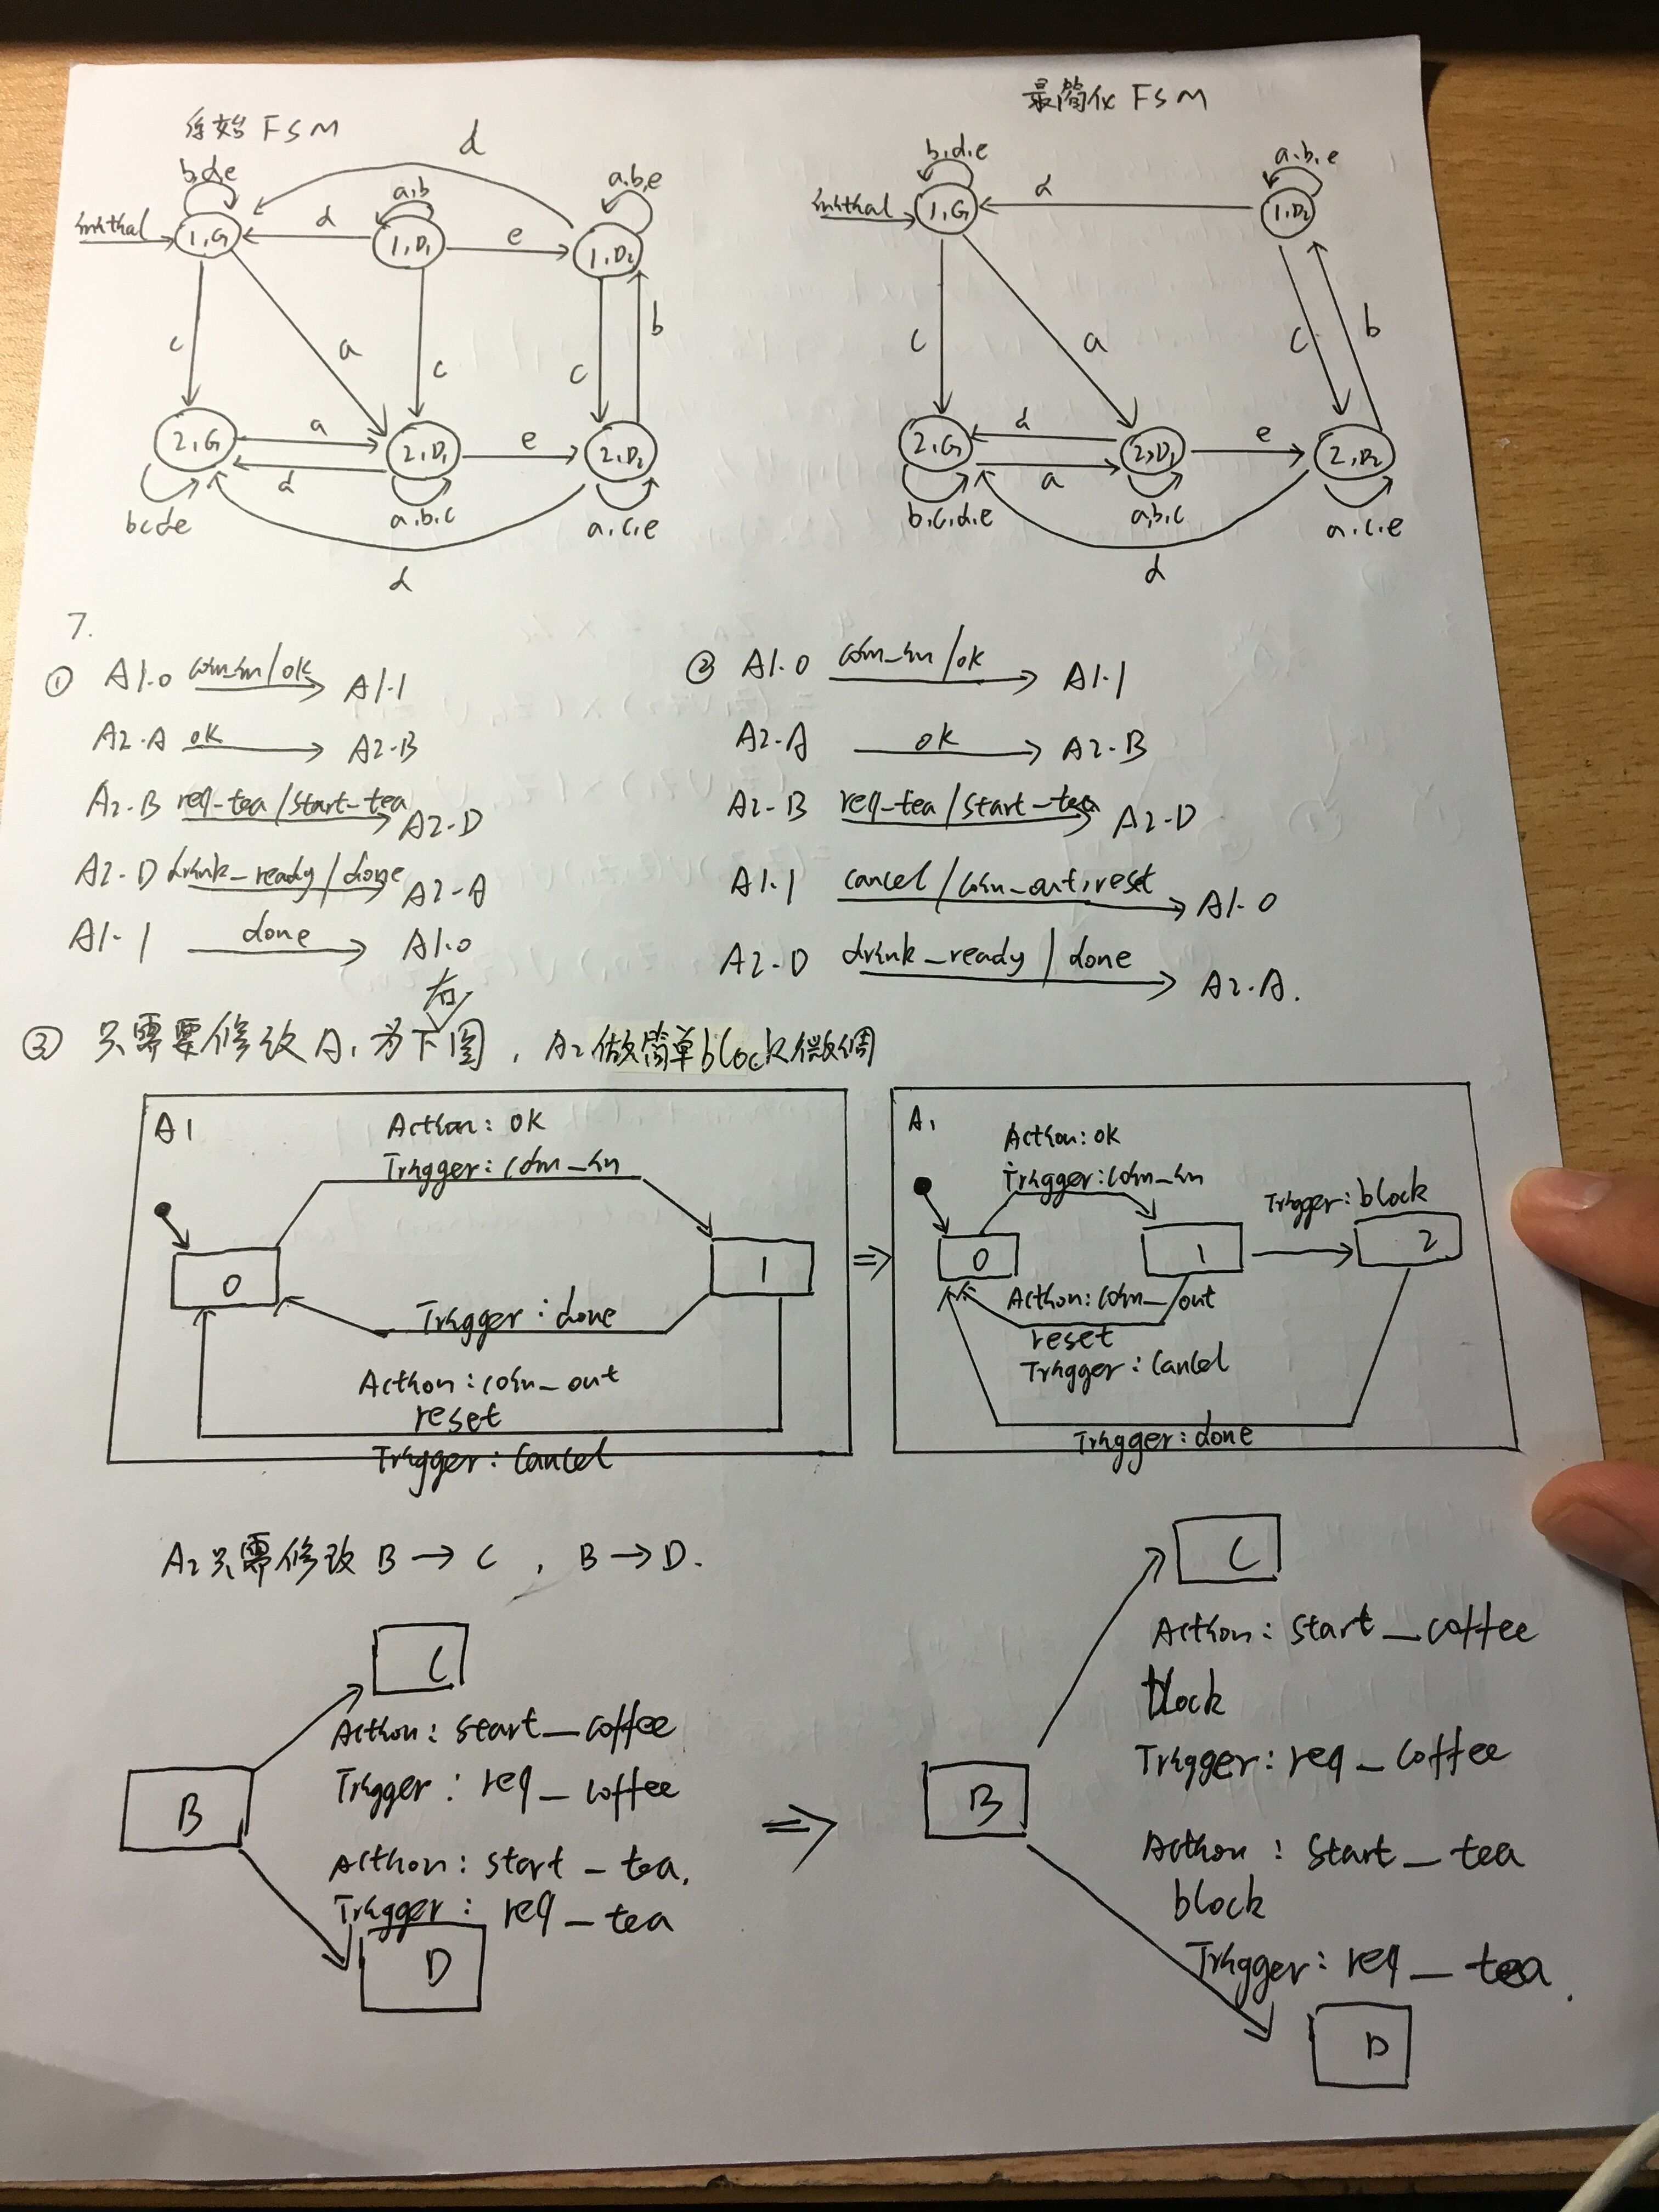 原始FSM
最简化FSM
d
b,d,e
a,b
a,b,e
inithal
1,G
d
1,D₁
e
1,D₂
c
a
c
c
b
2,G
a
d
2,D₁
e
2,D₂
bcde
a,b,c
a,c,e
d
b,d,e
a,b,e
inithal
1,G
d
1,D₂
c
a
c
b
2,G
d
a
2,D₁
e
2,D₂
b,c,d,e
a,b,c
a,c,e
d
7.
① A1.0 coin_in/ok A1.1
A2.A ok A2.B
A2.B req_tea/start_tea A2.D
A2.D drink_ready/done A2.A
A1.1 done A1.0
② A1.0 coin_in/ok A1.1
A2.A ok A2.B
A2.B req_tea/start_tea A2.D
A1.1 cancel/coin_out,reset A1.0
A2.D drink_ready/done A2.A.
右
③ 只需要修改A₁为下图，A₂做简单block微调
A1
Action: ok
Trigger: coin_in
0
1
Trigger: done
Action: coin_out
reset
Trigger: cancel
⇒
A₁
Action: ok
Trigger: coin_in
Trigger: block
0
1
2
Action: coin_out
reset
Trigger: cancel
Trigger: done
A₂只需修改 B→C，B→D.
C
Action: start_coffee
Trigger: req_coffee
B
Action: start_tea.
Trigger: req_tea
D
⇒
C
Action: start_coffee
block
Trigger: req_coffee
B
Action: start_tea
block
Trigger: req_tea.
D